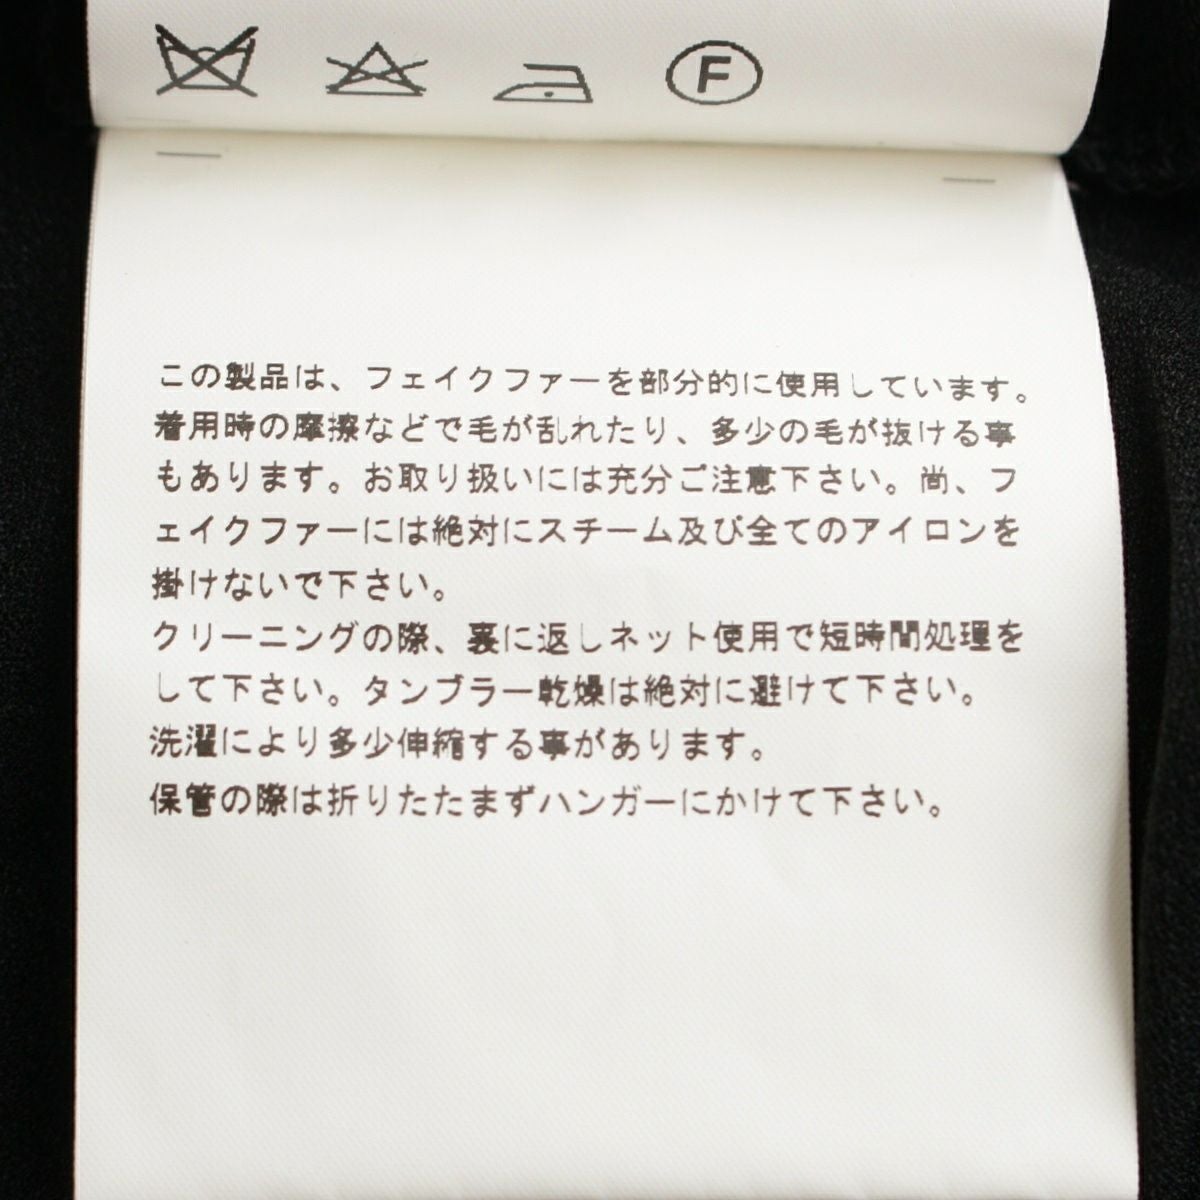 F
この製品は、フェイクファーを部分的に使用しています。
着用時の摩擦などで毛が乱れたり、多少の毛が抜ける事
もあります。お取り扱いには充分ご注意下さい。尚、フ
ェイクファーには絶対にスチーム及び全てのアイロンを
掛けないで下さい。
クリーニングの際、裏に返しネット使用で短時間処理を
して下さい。タンブラー乾燥は絶対に避けて下さい。
洗濯により多少伸縮する事があります。
保管の際は折りたたまずハンガーにかけて下さい。